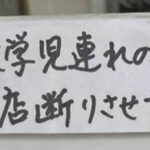 学児連れの
店断りさせ